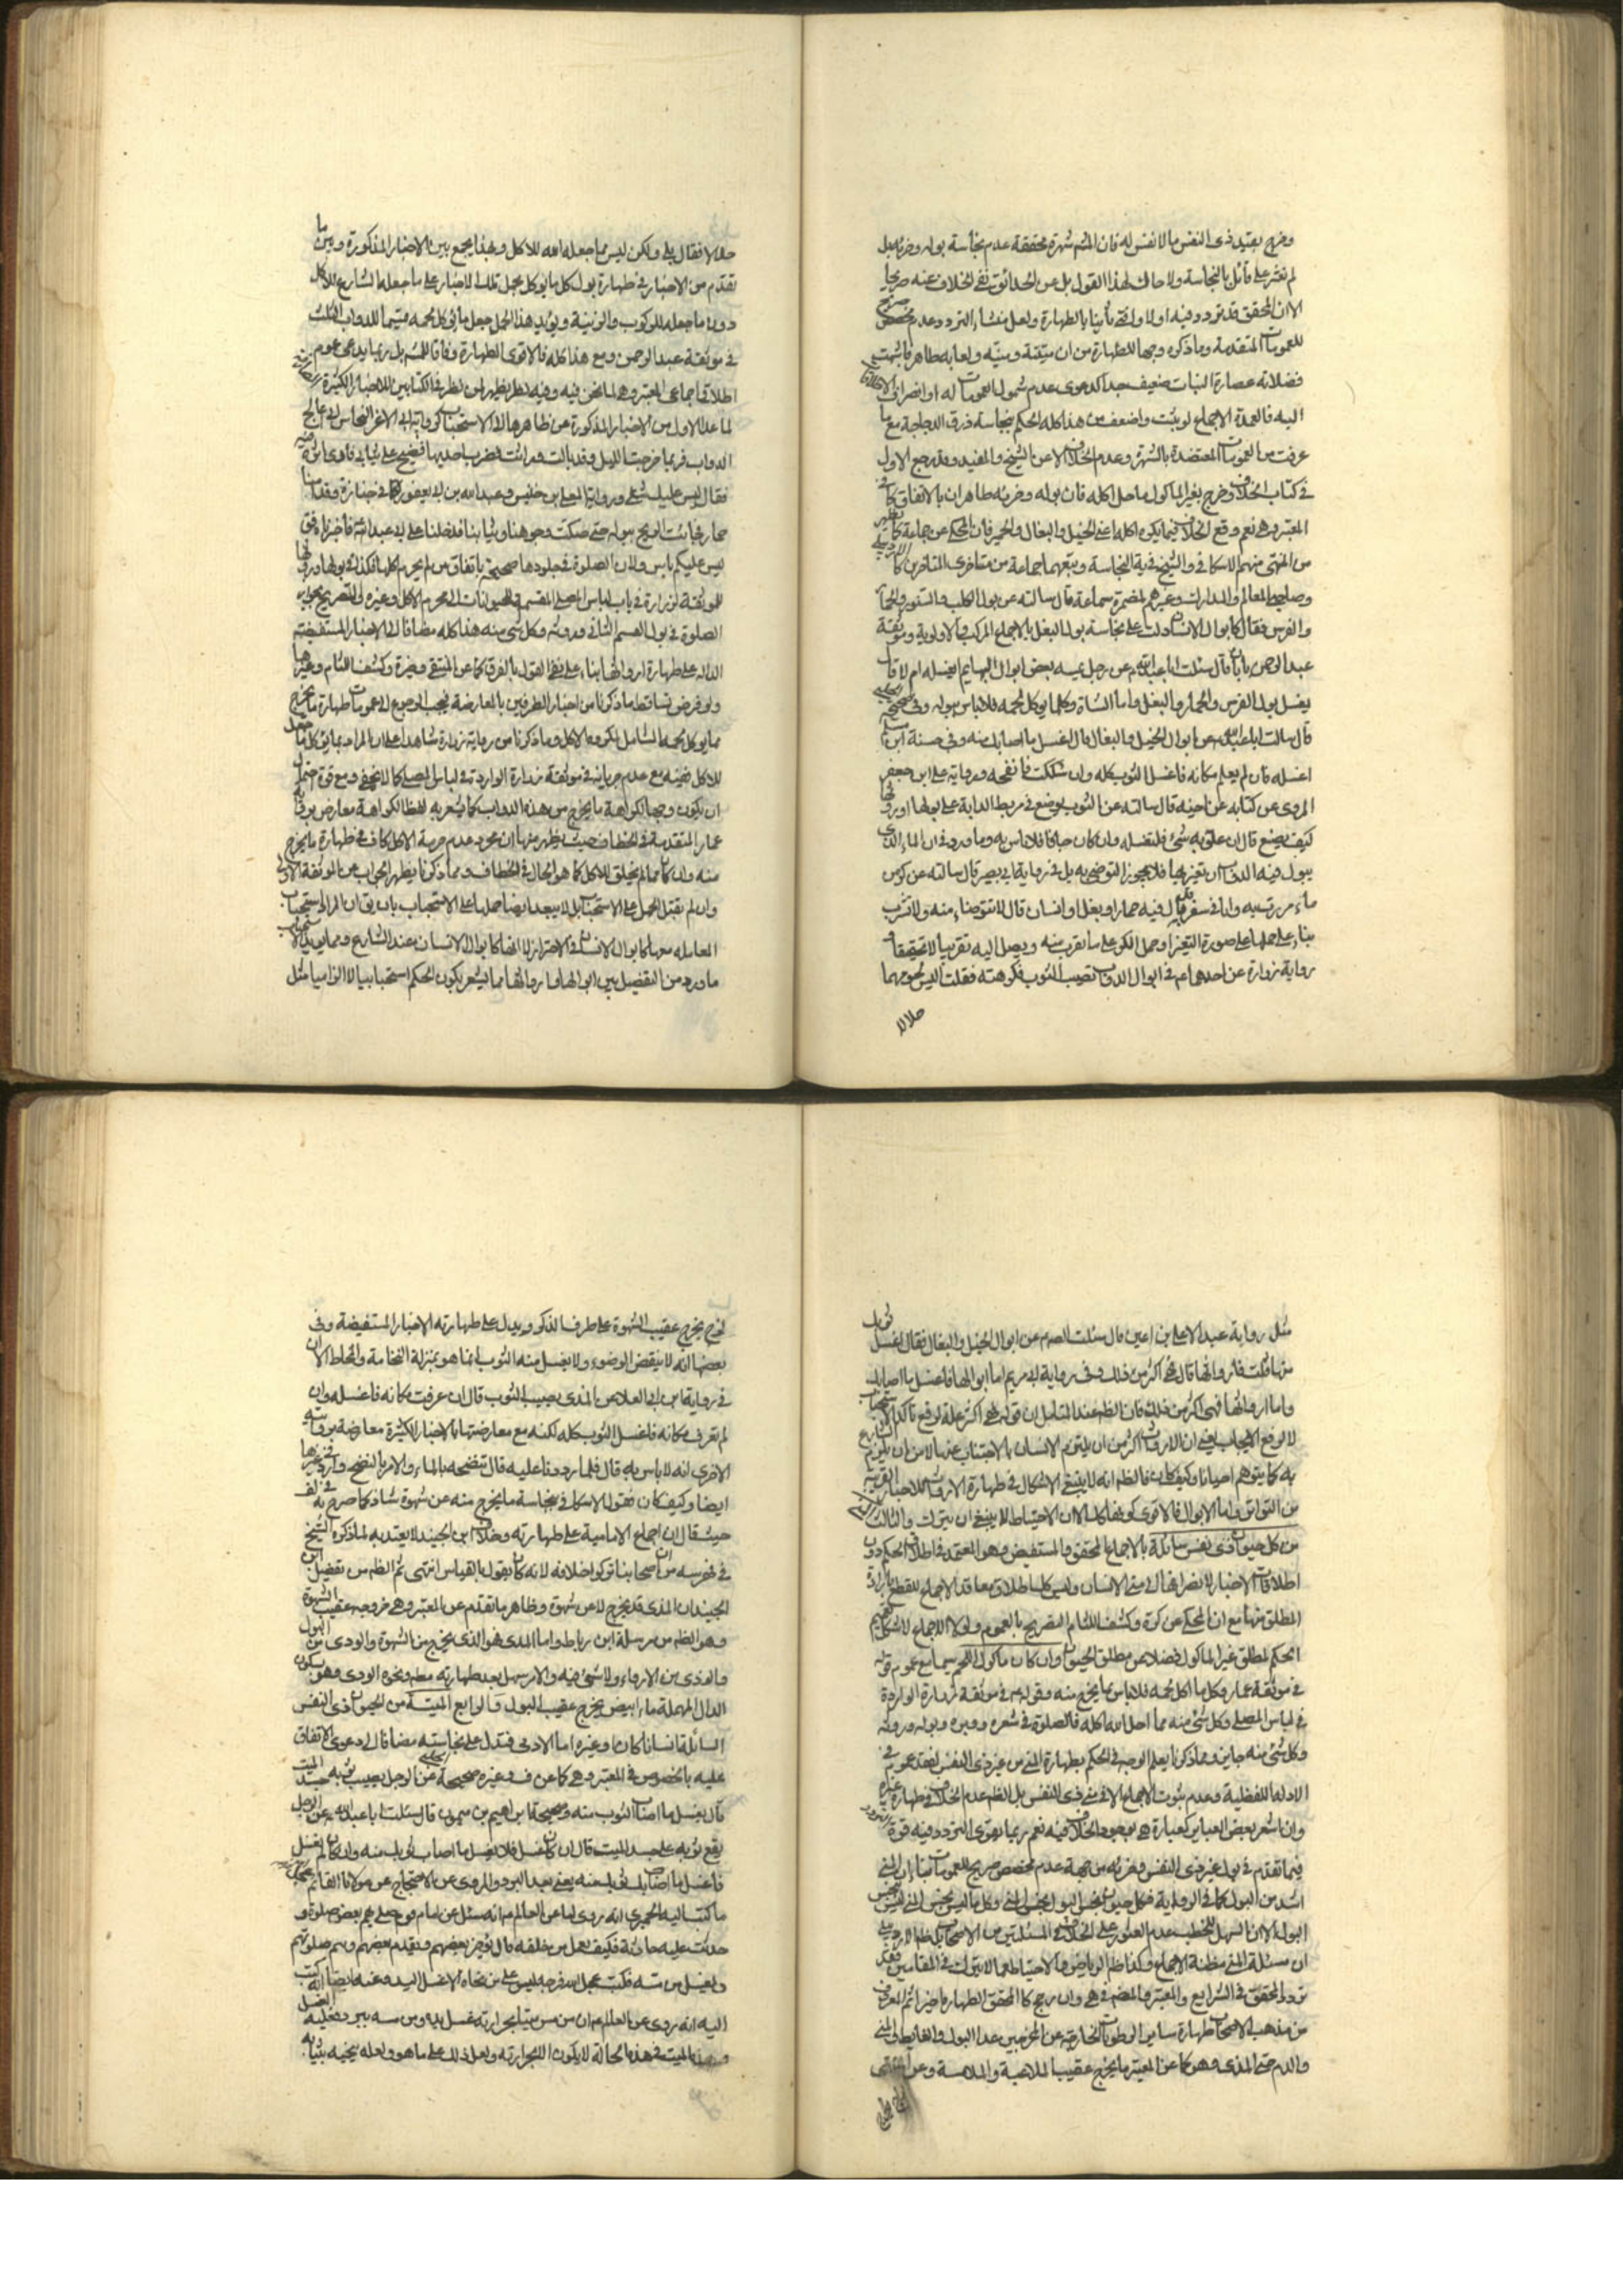 وخرج بقيد ذى النفس ما لا نفس له فان المشهور شهرة محققة عدم نجاسة بوله وخرئه بل
لم نعثر على قائل بالنجاسة ولا حاك لهذا القول بل عن الحدائق نفى الخلاف عنه صريحا
الا ان المحقق قد تردد فيه اولا وافتى ثانيا بالطهارة ولعل منشاء التردد وعدم مخصص صريح
للعمومات المتقدمة وما ذكره وجها للطهارة من ان ميتته ومنيه ولعابه طاهر فاشبهت
فضلاته عصارة النبات ضعيف جدا كدعوى عدم شمول العمومات له او انصراف
اليه فالعمدة الاجماع لو ثبت واضعف من هذا كله الحكم بنجاسة ذرق الدجاجة مع ما
عرفت من العمومات المعتضدة بالشهرة وعدم الخلاف الا عن الشيخ والمفيد وقد رجع الاول
فى كتاب الخلاف وخرج بغير المأكول ما حل اكله فان بوله وخرئه طاهران بالاتفاق كما فى
المعتبر وهى نعم وقع الخلاف فيما يكره اكله اعنى الخيل والبغال والحمير فان المحكى عن جماعة كما
من المنتهى منهم الاسكافى والشيخ فى يه النجاسة وتبعهما جماعة من متاخرى المتاخرين كا
وصاحبى المعالم والمدارك وغيرهم لمضمرة سماعة قال سالته عن بول الكلب والسنور والحمار
والفرس فقال كابوال الانسان دلت على نجاسة بول البغل بالاجماع المركب والاولوية وموثقة
عبد الرحمن قال سئلت ابا عبد الله عن رجل يمسه بعض ابوال البهايم ايغسله ام لا قال
يغسل بول الفرس والحمار والبغل واما الشاة وكلما يوكل لحمه فلا باس ببوله وفى صحيحة
قال سالت ابا عبد الله عن ابوال الخيل والبغال قال اغسل ما اصابك منه وفى حسنة ابن مسلم
اغسله فان لم يعلم مكانه فاغسل الثوب كله وان شككت فانضحه ورواية على ابن جعفر
المروى عن كتابه عن اخيه قال سالته عن الثوب يوضع فى مربط الدابة على بولها او روثها
كيف يصنع قال ان علق به شئ فلتغسله وان كان جافا فلا باس به وما ورد فى ان الماء الذى
يبول فيه الدواب ان تغير بها فلا يجوز التوضى به بل فى رواية ابى بصير قال سالته عن كر من
ماء مررت به وانا فى سفر قد بال فيه حمار او بغل او انسان قال لا تتوضاء منه ولا تشرب
بناء على حملها على صورة التغير او حمل الكر على ما يقرب منه ويصل اليه تقريبا لا تحقيقا و
رواية زرارة عن احدهما ع فى ابوال الدواب تصيب الثوب فكرهته فقلت اليس لحومها
حلالا
حلالا فقال بلى ولكن ليس مما جعله الله للاكل وبهذا يجمع بين الاخبار المذكورة وبين ما
تقدم من الاخبار فى طهارة بول كل ما يوكل بحمل تلك الاخبار على ما جعله الشارع للاكل
دون ما جعله للركوب والزينة ويؤيد هذا الحمل جعل مأكول لحمه قسيما للدواب الثلث
فى موثقة عبد الرحمن ومع هذا كله فالاقوى الطهارة وفاقا للمشهور بل ربما يدعى عموم
اطلاق اجماعى المعتبر وهى لما نحن فيه وفيه نظر يظهر لمن نظر فى الكتابين للاخبار الكثيرة
لما عدا الاول من الاخبار المذكورة عن ظاهرها الى الاستحباب كرواية ابى الاغر النحاس انى اعالج
الدواب فربما خرجت بالليل وقد بالت وراثت فيضرب احديها فينضح على ثيابى
فقال ليس عليك شئ ورواية المعلى بن خنيس وعبد الله بن ابى يعفور كنا فى جنازة وقدامنا
حمار فجائت الريح ببوله حتى صكت وجوهنا وثيابنا فدخلنا على ابى عبد الله فاخبرناه فق
ليس عليكم باس ولان الصلوة فى جلودها صحيحة باتفاق من لم يحرم اكلها فكذا فى بولها وروثها
للموثقة لزرارة فى باب لباس المصلى المقسم للحيوانات الى محرم الاكل وغيره للتصريح بجواز
الصلوة فى بول القسم الثانى وروثه وكل شئ منه هذا كله مضافا الى الاخبار المستفيضة
الدالة على طهارة ارواثها بناء على نفى القول بالفرق كما عن المنتهى وغيره وكشف اللثام وغيرها
ولو فرض تساقط ما ذكرنا من اخبار الطرفين بالمعارضة فيجب الرجوع الى عمومات طهارة ما يخرج
مما يوكل لحمه الشامل لمكروه الاكل وما ذكرنا من رواية زرارة شاهدا على ان المراد بمايؤكل ما جعل
للاكل فيه مع عدم جريانه فى موثقة زرارة الواردة فى لباس المصلى كما لا يخفى ومع قوة احتمال
ان يكون وجها لكراهة ما يخرج من هذه الدواب كما يشعر به لفظ الكراهة معارض برواية
عمار المتقدمة فى الخطاف حيث يظهر منها ان مجرد عدم حرمة الاكل كاف فى طهارة ما يخرج
منه وان كان مما لم يخلق للاكل كما هو الحال فى الخطاف ومما ذكرنا يظهر الجواب عن الموثقة الاولى
وان لم يقبل الحمل على الاستحباب بل لا يبعد ايضا حملها على الاستحباب بان يق ان المراد استحباب
المعاملة معها كابوال الانسان فى الاحتراز لا انها كابوال الانسان عند الشارع ومما يؤيد الاستحباب
ما ورد من التفصيل بين ابوالها وارواثها مما يشعر بكون الحكم استحبابيا لا الزاميا مثل
مثل رواية عبد الاعلى بن اعين قال سئلت الصم عن ابوال الخيل والبغال فقال اغسل ثوبك
منها قلت فارواثها قال هى اكثر من ذلك وفى رواية ابى مريم اما ابوالها فاغسل ما اصابك
واما ارواثها فهى اكثر من ذلك فان الظم عند المتامل ان قوله هى اكثر علة لرفع تاكد الاستحباب
لا لرفع الايجاب يعنى ان الارواث اكثر من ان يلتزم الانسان بالاجتناب عنها لا من ان يلزم الشارع
به كما يتوهم احيانا وكيف كان فالظم انه لا ينبغى الاشكال فى طهارة الارواث للاخبار القريبة
من التواتر واما الابوال فالاقوى كونها كك الا ان الاحتياط لا ينبغى ان يترك والثالث المنى
من كل حيوان ذى نفس سائلة بالاجماع المحقق والمستفيض وهو المعتمد فى اطلاق الحكم دون
اطلاقات الاخبار لانصرافها الى منى الانسان وليس كك اطلاق معاقد الاجماع للقطع بارادة
المطلق منها مع ان المحكى عن كرة وكشف اللثام التصريح بالعموم ولولا الاجماع لاشكل تعميم
الحكم لمطلق غير المأكول فضلا عن مطلق الحيوان وان كان مأكول اللحم سيما مع عموم قوله
فى موثقة عمار وكل ما اكل لحمه فلا باس بما يخرج منه وقوله ع فى موثقة لزرارة الواردة
فى لباس المصلى وكل شئ منه مما احل الله اكله فالصلوة فى شعره ووبره وبوله وروثه
وكل شئ منه جايز ومما ذكرنا يعلم الوجه فى الحكم بطهارة المنى من غير ذى النفس لفقد عموم فى
الادلة اللفظية وعدم ثبوت الاجماع الا فى منى ذى النفس بل الظم عدم الخلاف فى طهارة غيره
وان اشعر بعض العباير كعبارة هى بوجود الخلاف فيه نعم ربما يقوى التردد فيه قوة
فيما تقدم فى بول غير ذى النفس وخرئه من جهة عدم مخصص صريح للعمومات بناء ان المنى
اشد من البول كما فى الرواية فكل حيوان نجس البول نجس المنى وكل ما ليس بنجس المنى ليس بنجس
البول الا ان السهل للخطب عدم العثور على الخلاف فى المسئلتين من الاصحاب بل ظاهر الاردبيلى
ان مسئلة المنى مظنة الاجماع وكذا ظم الرياض والاحتياط مما لا يترك فى المقامين فقد
تردد المحقق فى الشرايع والمعتبر والمنتهى فى هى وان رجح كا المحقق الطهارة اخيرا ثم المعروف
من مذهب الاصحاب طهارة ساير الرطوبات الخارجة عن المخرجين عدا البول والغايط والمنى
والدم حتى المذى وهو كما عن المعتبر ما يخرج عقيب الملاعبة والملامسة وعن
لزج يخرج عقيب الشهوة على طرف الذكر ويدل على طهارته الاخبار المستفيضة وفى
بعضها انه لا ينقض الوضوء ولا يغسل منه الثوب انما هو بمنزلة النخامة والمخاط الا ان
فى رواية ابن ابى العلا عن المذى يصيب الثوب قال ان عرفت مكانه فاغسله وان
لم تعرف مكانه فاغسل الثوب كله لكنه مع معارضتها بالاخبار الكثيرة معارضة بروايته
الاخرى انه لا باس به قال فلما رددنا عليه قال تنضحه بالماء والامر بالنضح وارد فى غيرها
ايضا وكيف كان فقول الاسكافى بنجاسة ما يخرج منه عن شهوة شاذ كما صرح به فى لف
حيث قال ان اجماع الامامية على طهارته وخلاف ابن الجنيد لا يعتد به لما ذكره الشيخ
فى فهرسه من ان اصحابنا تركوا خلافه لانه كان يقول بالقياس انتهى ثم الظم من تفصيل ابن
الجنيد ان المذى قد يخرج لا عن شهوة وظاهر ما تقدم عن المعتبر وهى خروجه عقيب الشهوة
وهو الظم من مرسلة ابن رباط واما المذى هو الذى يخرج من الشهوة والودى من البول
والوذى من الادواء ولا شئ فيه والامر سهل بعد طهارته مطم ونحوه الودى وهو بسكون
الدال المهملة ماء ابيض يخرج عقيب البول والرابع الميتة من الحيوان ذى النفس
السائلة انسانا كان او غيره اما الادمى فتدل على نجاسته مضافا الى دعوى الاتفاق
عليه بالخصوص فى المعتبر وهى كما عن ف وغيره صحيحة الحلبى عن الرجل يصيب ثوبه جسد الميت
قال يغسل ما اصاب الثوب منه وصحيحة ابراهيم بن ميمون قال سئلت ابا عبد الله عن الرجل
يقع ثوبه على جسد الميت قال ان كان غسل فلا تغسل ما اصاب ثوبك منه وان كان لم يغسل
فاغسل ما اصاب ثوبك منه يعنى بعد البرد والمروى عن الاحتجاج عن مولانا القائم عجل
ما كتب اليه الحميرى انه روى لنا عن العالم ع انه سئل عن امام قوم صلى بهم بعض صلوة و
حدثت عليه حادثة فكيف يعمل من خلفه قال يؤخر بعضهم ويتقدم بعضهم ويتم صلوتهم
ويغتسل من مسه فكتب عجل الله فرجه ليس على من نحاه الا غسل اليد وعنه ايضا انه كتب
اليه انه روى عن العالم ع ان من مس ميتا بحرارته غسل يده ومن مسه ببرد فعليه الغسل
وهذا الميت فى هذه الحالة لا يكون الا بحرارته ولعل ذلك على ما هو ولعله ينحيه بثيابه